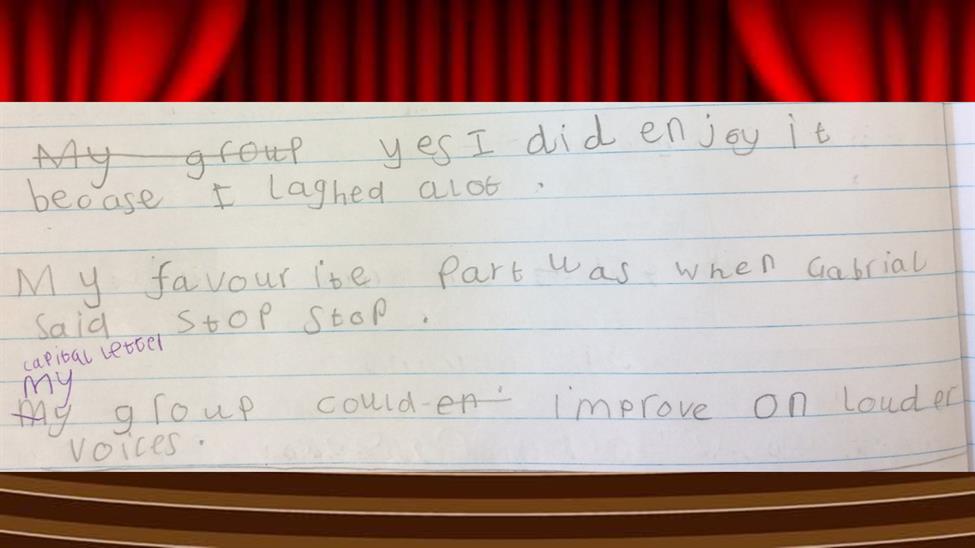 My group yes I did enjoy it
becase I laghed alot.
My favourite part was when Gabrial
said stop stop.
capital letter
My
My group could en improve on louder
voices.